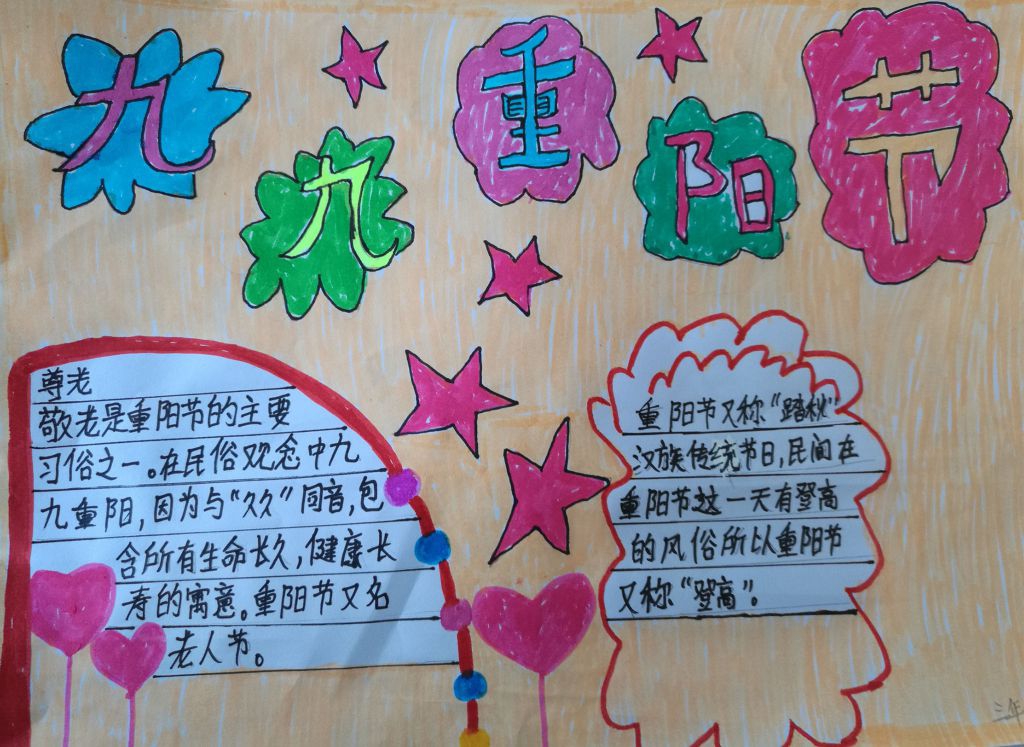 九九重阳节
尊老
敬老是重阳节的主要
习俗之一。在民俗观念中九
九重阳，因为与“久久”同音，包
含所有生命长久，健康长
寿的寓意。重阳节又名
老人节。
重阳节又称“踏秋”
汉族传统节日，民间在
重阳节这一天有登高
的风俗所以重阳节
又称“登高”。
三年